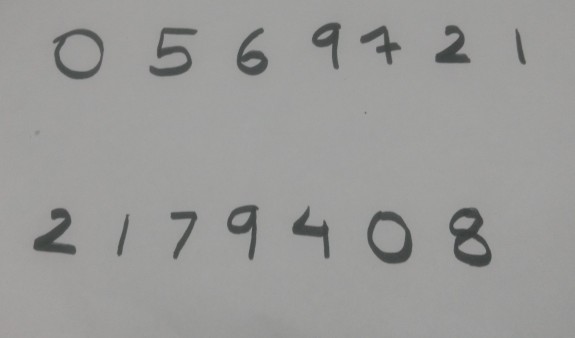 0 5 6 9 7 2 1
2 1 7 9 4 0 8